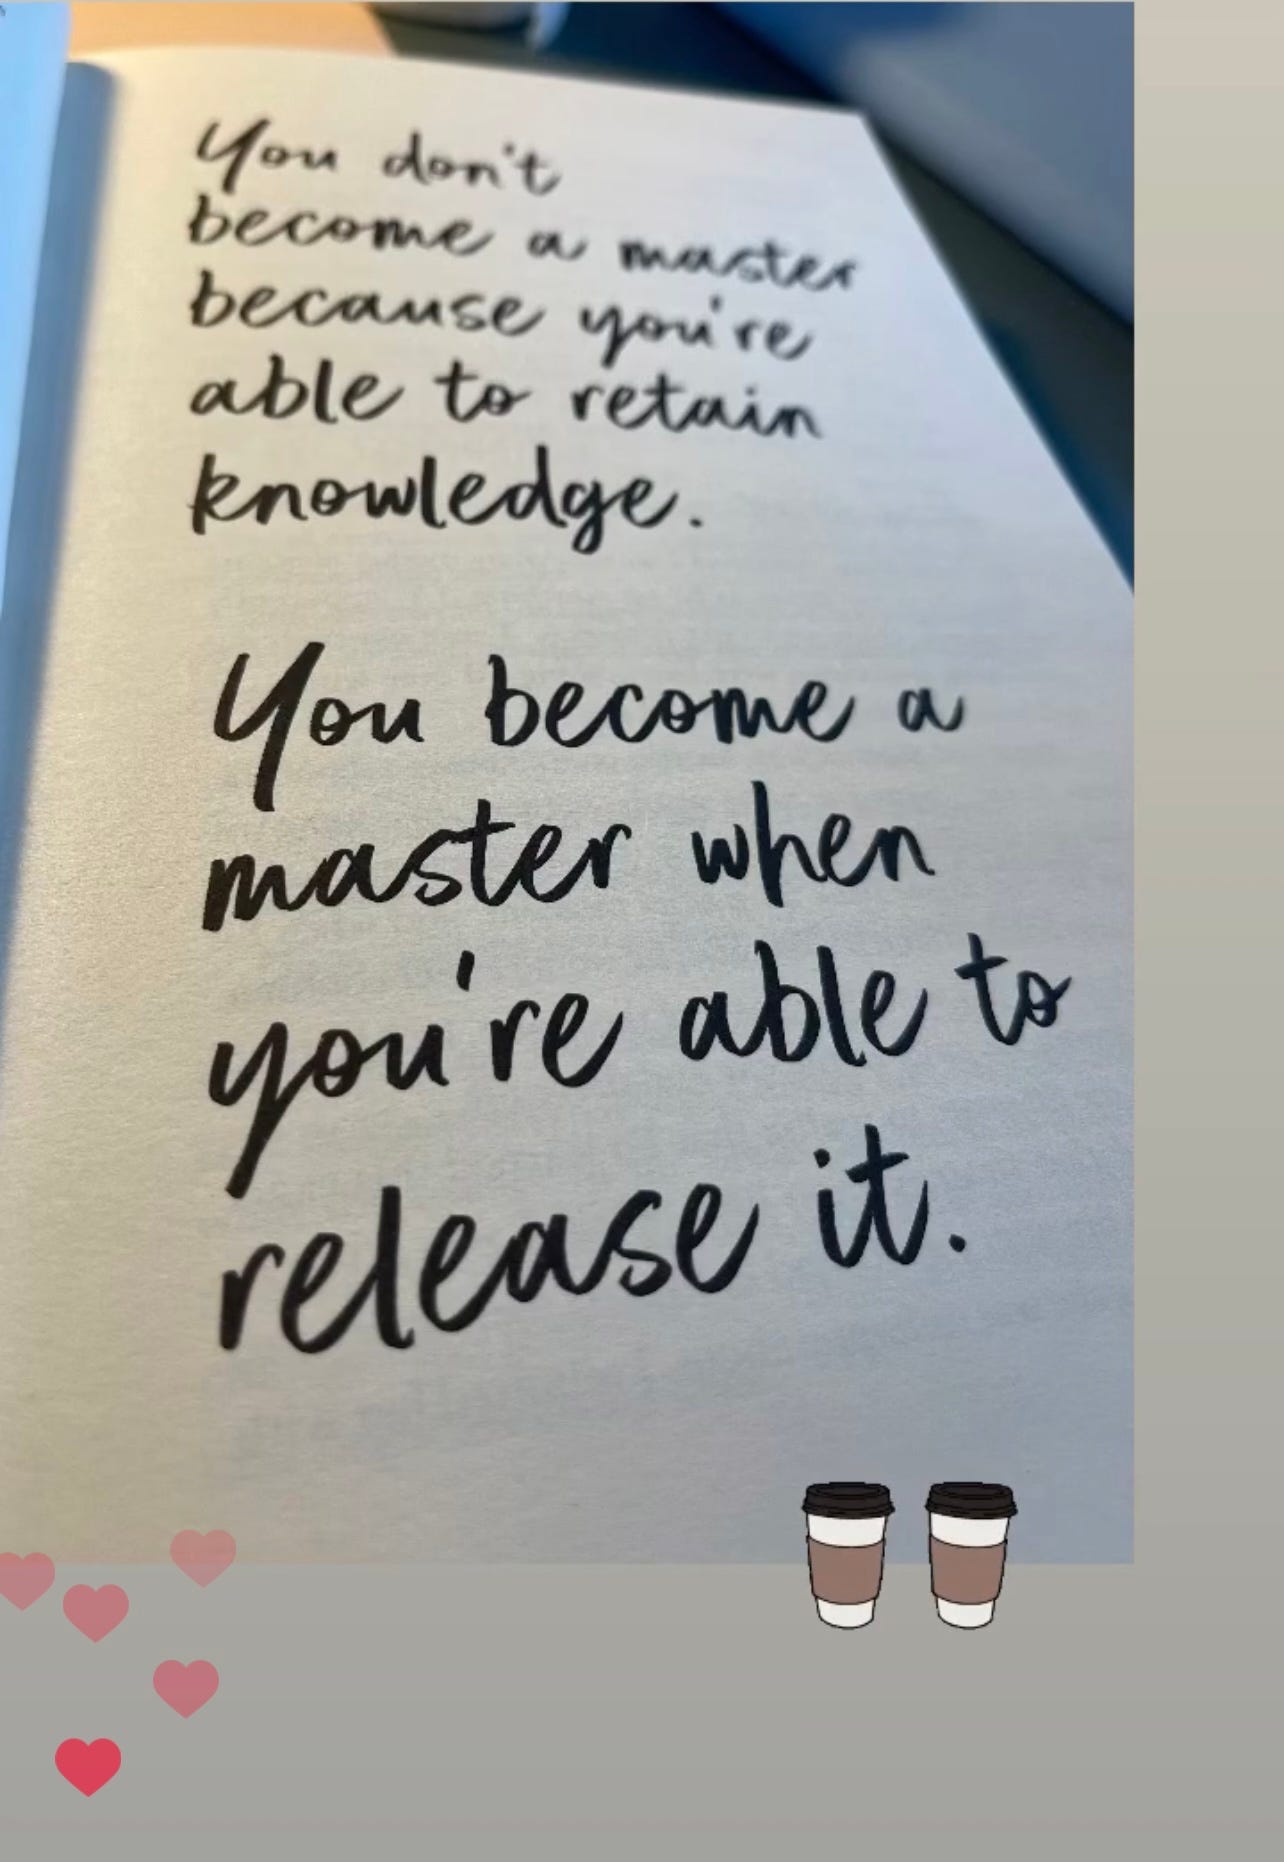 You don't
become a master
because you're
able to retain
knowledge.
You become a
master when
you're able to
release it.